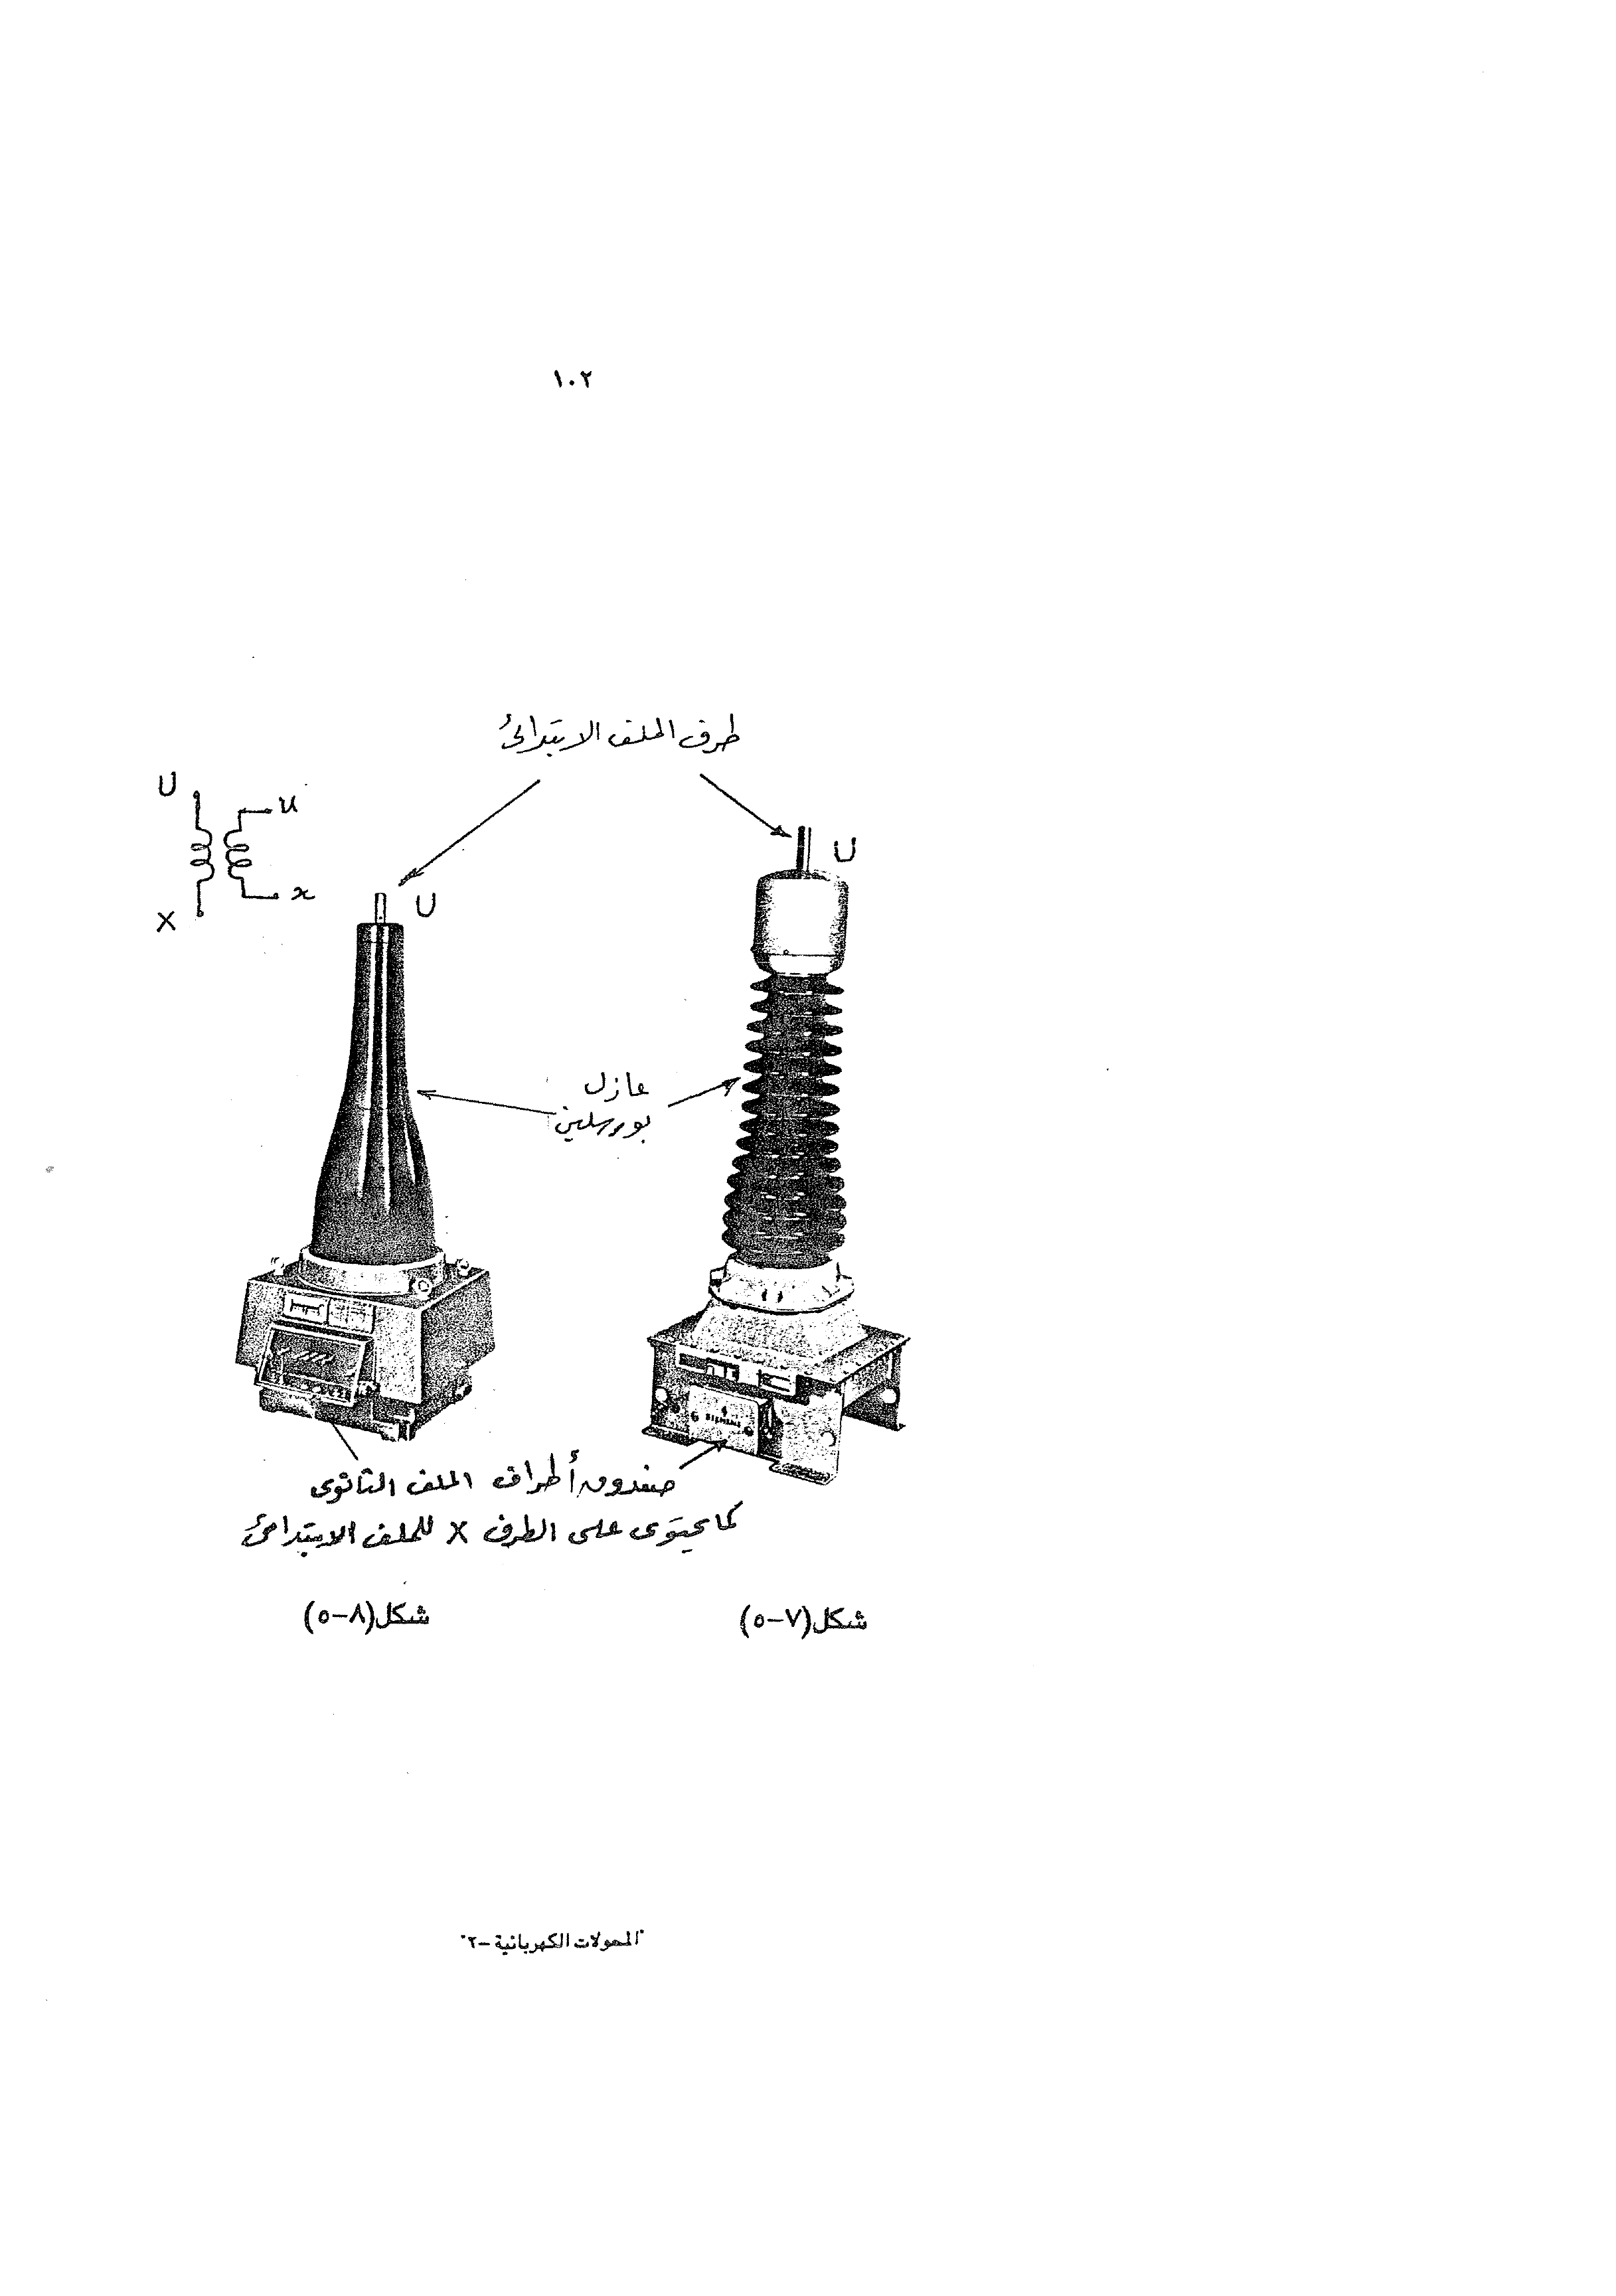 ١٠٢
طرف الملف الابتدائى
U
u
U
x
X
U
عازل
بورسلين
SIEMENS
صندوق أطراف الملف الثانوى
كما يحتوى على الطرف X للملف الابتدائى
شكل(٧-٥)
شكل(٨-٥)
"المحولات الكهربائية -٢"